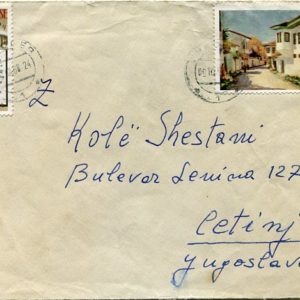 Z
Kolë Shestani
Bulevar Lenina 127
Cetinj
Yugoslavi